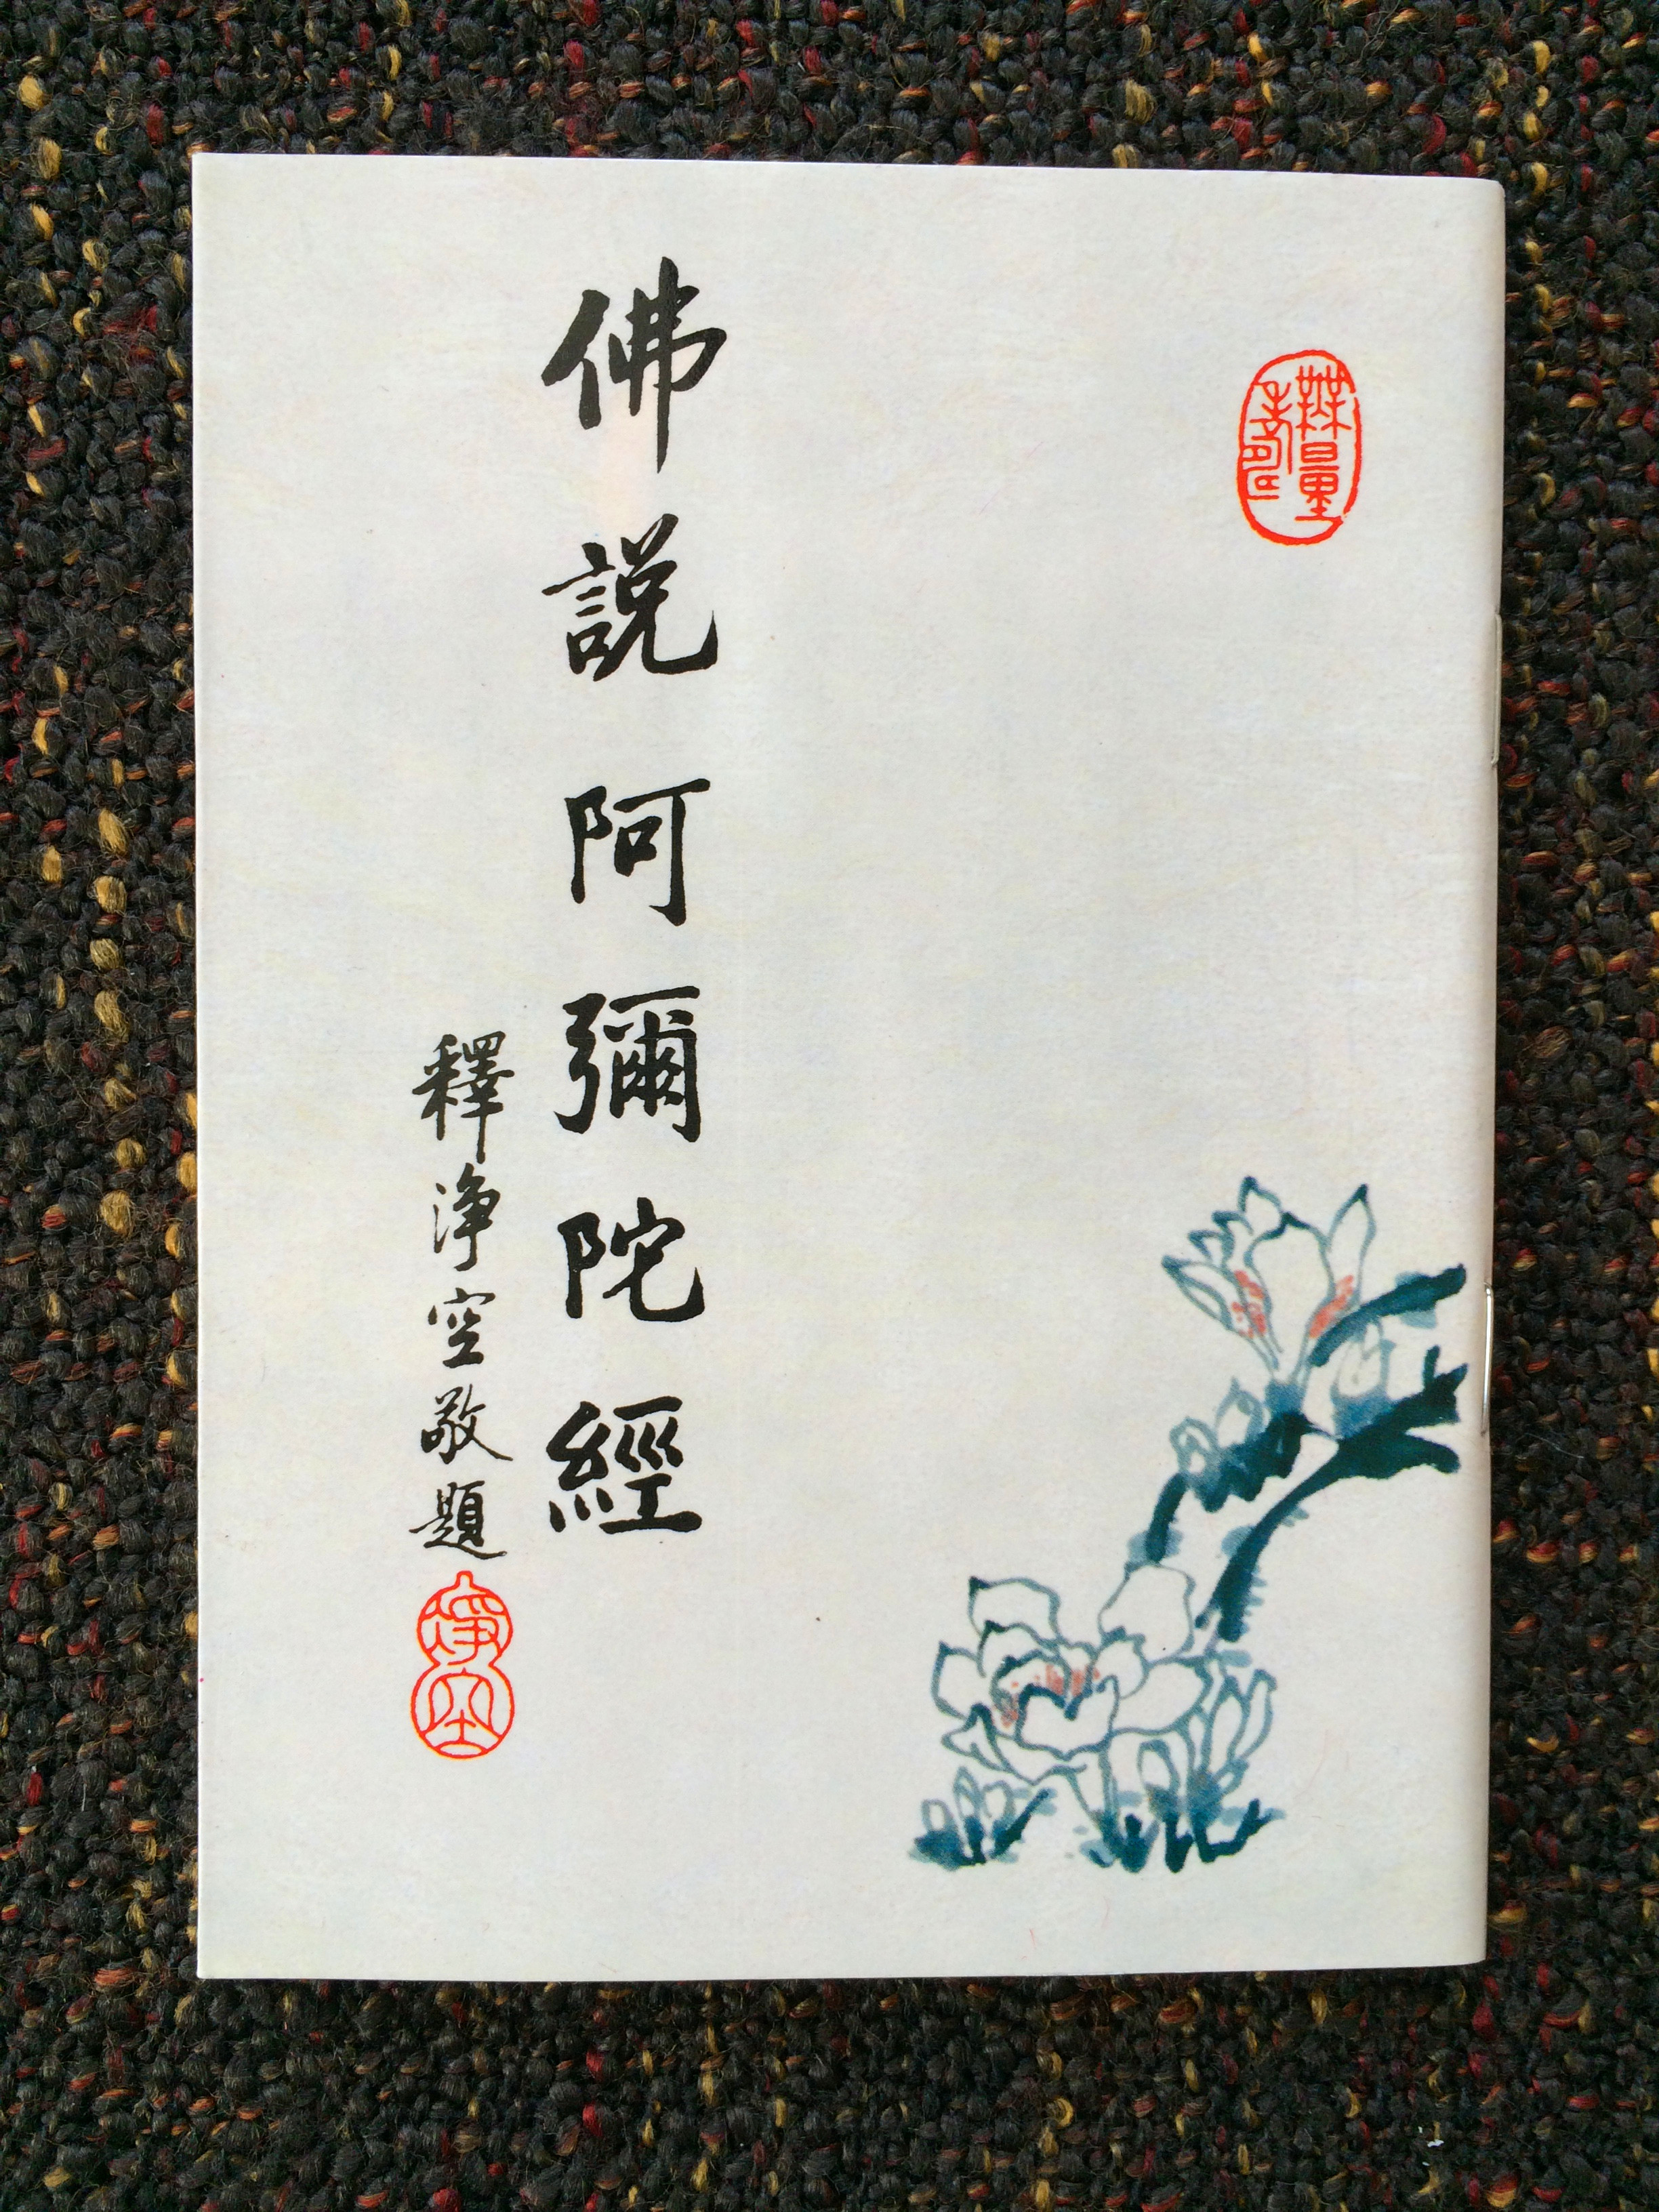 無量壽
佛說阿彌陀經
釋淨空敬題
淨空